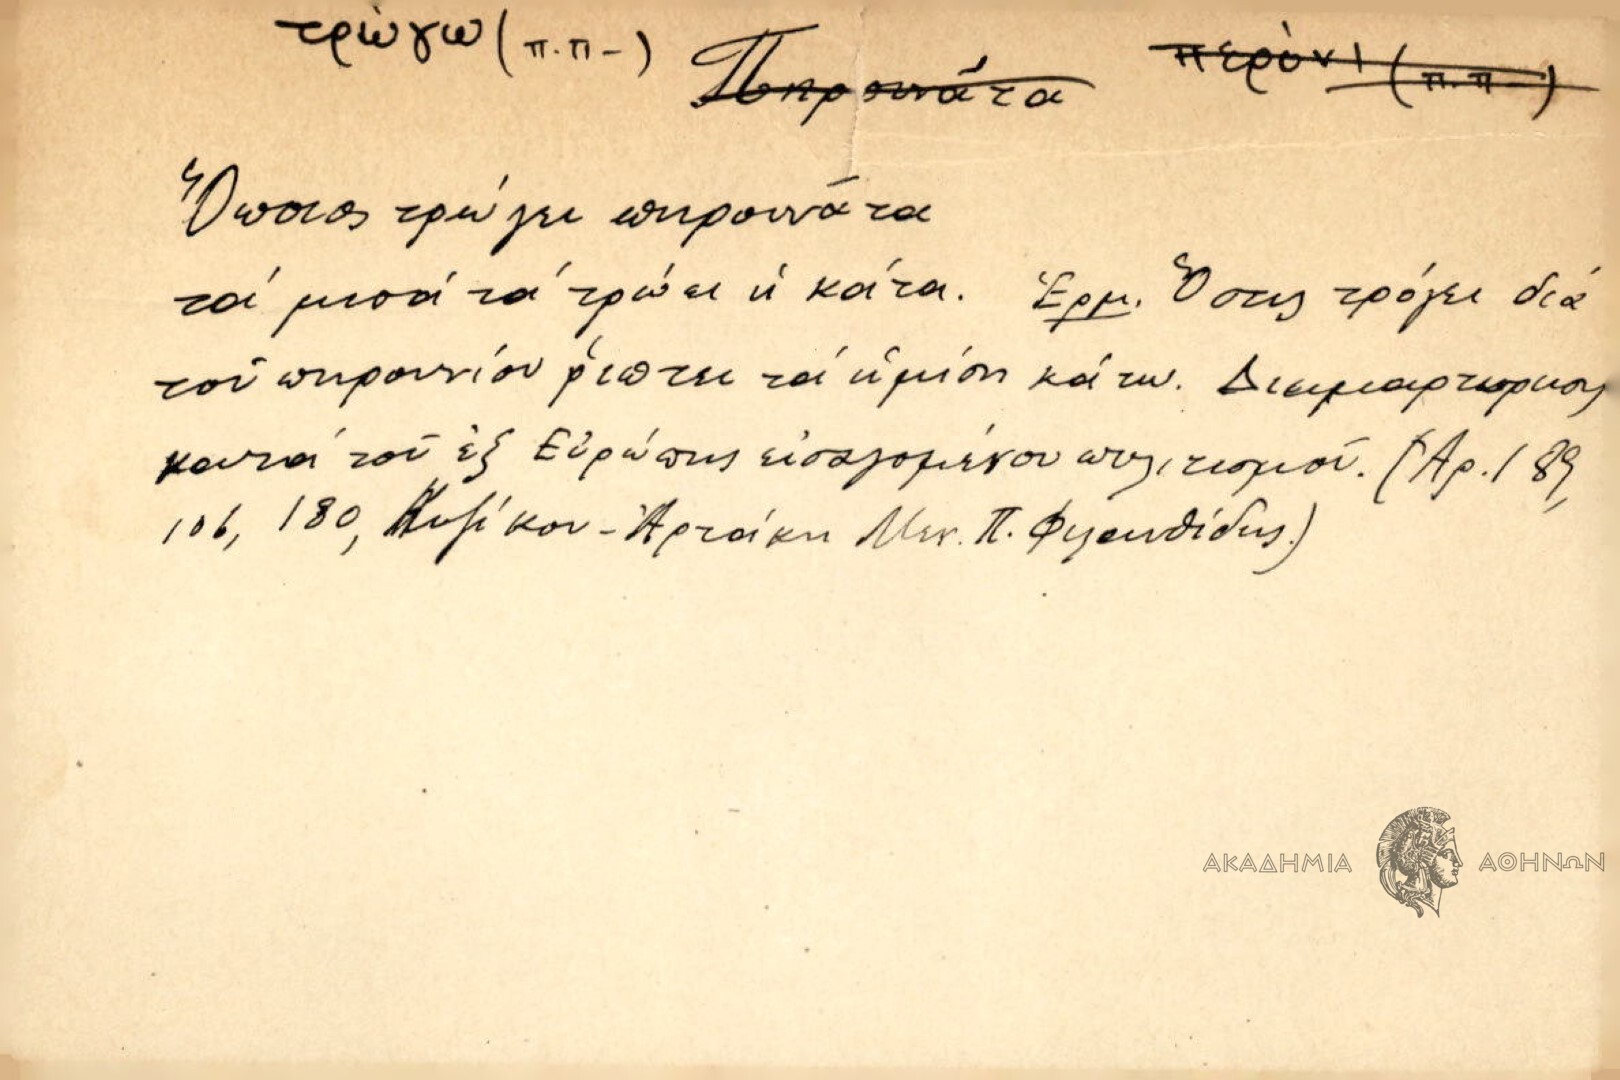 τρώγω (π.π-) Πηρουνάτα περόνι (π.π-)
Ὅποιος τρώγει πηρουνάτα
τά μισά τά τρώει ἡ κάτα. Ἑρμ. Ὅστις τρώγει διά
τοῦ πηρουνίου ῥίπτει τά ἡμίση κάτω. Διαμαρτύρησις
κατά τοῦ ἐξ Εὐρώπης εἰσαγομένου πολιτισμοῦ. (Ἀρ. 189,
106, 180, Κυζίκου - Ἀρτάκη Μεν. Π. Φιλανθίδης.)
ΑΚΑΔΗΜΙΑ ΑΘΗΝΩΝ